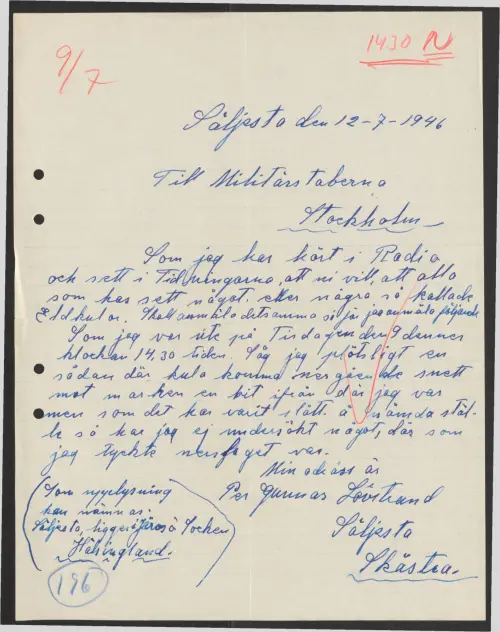 9/7
1430 N
Säljesta den 12-7-1946
Till Militärstaberna
Stockholm
Som jag har hört i Radio
och sett i Tidningarna, att ni vill, att alla
som har sett något eller några så kallade
Eldkulor. Skall anmäla detsamma så får jag anmäla följande
Som jag var ute på Tisdagen den 9 dennes
klockan 14,30 tiden. Såg jag plötsligt en
sådan där kula komma nergående snett
mot marken en bit ifrån där jag var
men som det har varit slått å nämda stäl-
le så har jag ej undersökt något, där som
jag tyckte var.
Min adräss är
Per Gunnar Lövstrand
Säljesta
Skästra.
(Som upplysning
kan nämnas.
Säljesta, ligger i Järvsö Socken
Hälsingland.)
196